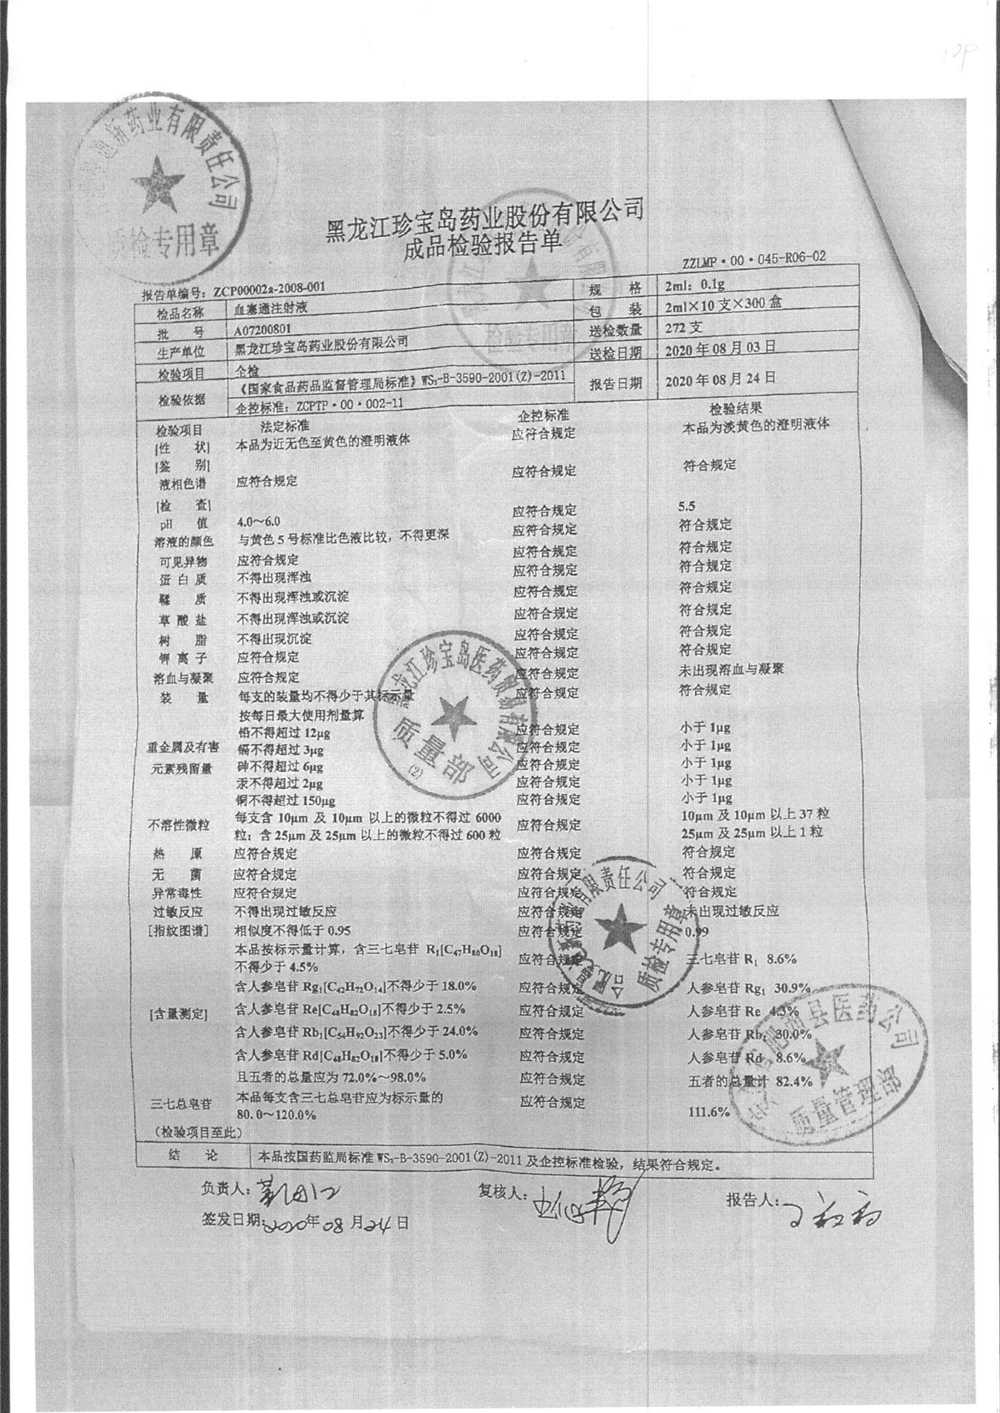 黑龙江珍宝岛药业股份有限公司
成品检验报告单
ZZLMP·00·045-R06-02
报告单编号：ZCP00002a-2008-001
检品名称 血塞通注射液 规 格 2ml：0.1g
批 号 A07200801 包 装 2ml×10支×300盒
生产单位 黑龙江珍宝岛药业股份有限公司 送检数量 272支
检验项目 全检 送检日期 2020年08月03日
检验依据 《国家食品药品监督管理局标准》WS₃-B-3590-2001(Z)-2011 报告日期 2020年08月24日
企控标准：ZCPTP·00·002-11
检验项目 法定标准 企控标准 检验结果
[性 状] 本品为近无色至黄色的澄明液体 应符合规定 本品为淡黄色的澄明液体
[鉴 别]
液相色谱 应符合规定 应符合规定 符合规定
[检 查]
pH 值 4.0～6.0 应符合规定 5.5
溶液的颜色 与黄色5号标准比色液比较，不得更深 应符合规定 符合规定
可见异物 应符合规定 应符合规定 符合规定
蛋白质 不得出现浑浊 应符合规定 符合规定
鞣 质 不得出现浑浊或沉淀 应符合规定 符合规定
草酸盐 不得出现浑浊或沉淀 应符合规定 符合规定
树 脂 不得出现沉淀 应符合规定 符合规定
钾离子 应符合规定 应符合规定 符合规定
溶血与凝聚 应符合规定 应符合规定 未出现溶血与凝聚
装 量 每支的装量均不得少于其标示量 应符合规定 符合规定
按每日最大使用剂量算
铅不得超过12μg 应符合规定 小于1μg
重金属及有害 镉不得超过3μg 应符合规定 小于1μg
元素残留量 砷不得超过6μg 应符合规定 小于1μg
汞不得超过2μg 应符合规定 小于1μg
铜不得超过150μg 应符合规定 小于1μg
不溶性微粒 每支含10μm及10μm以上的微粒不得过6000 应符合规定 10μm及10μm以上37粒
粒；含25μm及25μm以上的微粒不得过600粒 25μm及25μm以上1粒
热 原 应符合规定 应符合规定 符合规定
无 菌 应符合规定 应符合规定 符合规定
异常毒性 应符合规定 应符合规定 符合规定
过敏反应 不得出现过敏反应 应符合规定 未出现过敏反应
[指纹图谱] 相似度不得低于0.95 应符合规定 0.99
本品按标示量计算，含三七皂苷R₁[C₄₇H₈₀O₁₈] 应符合规定 三七皂苷R₁ 8.6%
不得少于4.5%
含人参皂苷Rg₁[C₄₂H₇₂O₁₄]不得少于18.0% 应符合规定 人参皂苷Rg₁ 30.9%
[含量测定] 含人参皂苷Re[C₄₈H₈₂O₁₈]不得少于2.5% 应符合规定 人参皂苷Re 4.3%
含人参皂苷Rb₁[C₅₄H₉₂O₂₃]不得少于24.0% 应符合规定 人参皂苷Rb₁ 30.0%
含人参皂苷Rd[C₄₈H₈₂O₁₈]不得少于5.0% 应符合规定 人参皂苷Rd 8.6%
且五者的总量应为72.0%～98.0% 应符合规定 五者的总量计82.4%
三七总皂苷 本品每支含三七总皂苷应为标示量的 应符合规定 111.6%
80.0～120.0%
(检验项目至此)
结 论 本品按国药监局标准WS₃-B-3590-2001(Z)-2011及企控标准检验，结果符合规定。
负责人： 复核人： 报告人：
签发日期：2020年08月24日
药业有限责任公司
质检专用章
黑龙江珍宝岛医药贸易有限公司
质量部
(2)
有限责任公司
质检专用章
县医药公司
质量管理